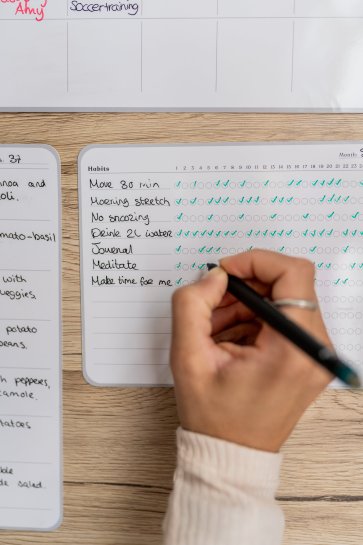 Amy
Soccertraining
37
and
oli.
mato-basil
with
veggies
potato
beans.
peppers,
Month:
Habits 1 2 3 4 5 6 7 8 9 10 11 12 13 14 15 16 17 18 19 20 21 22 23
Move 30 min
Morning stretch
No snoozing
Drink 2L water
Journal
Meditate
Make time for me
salad.